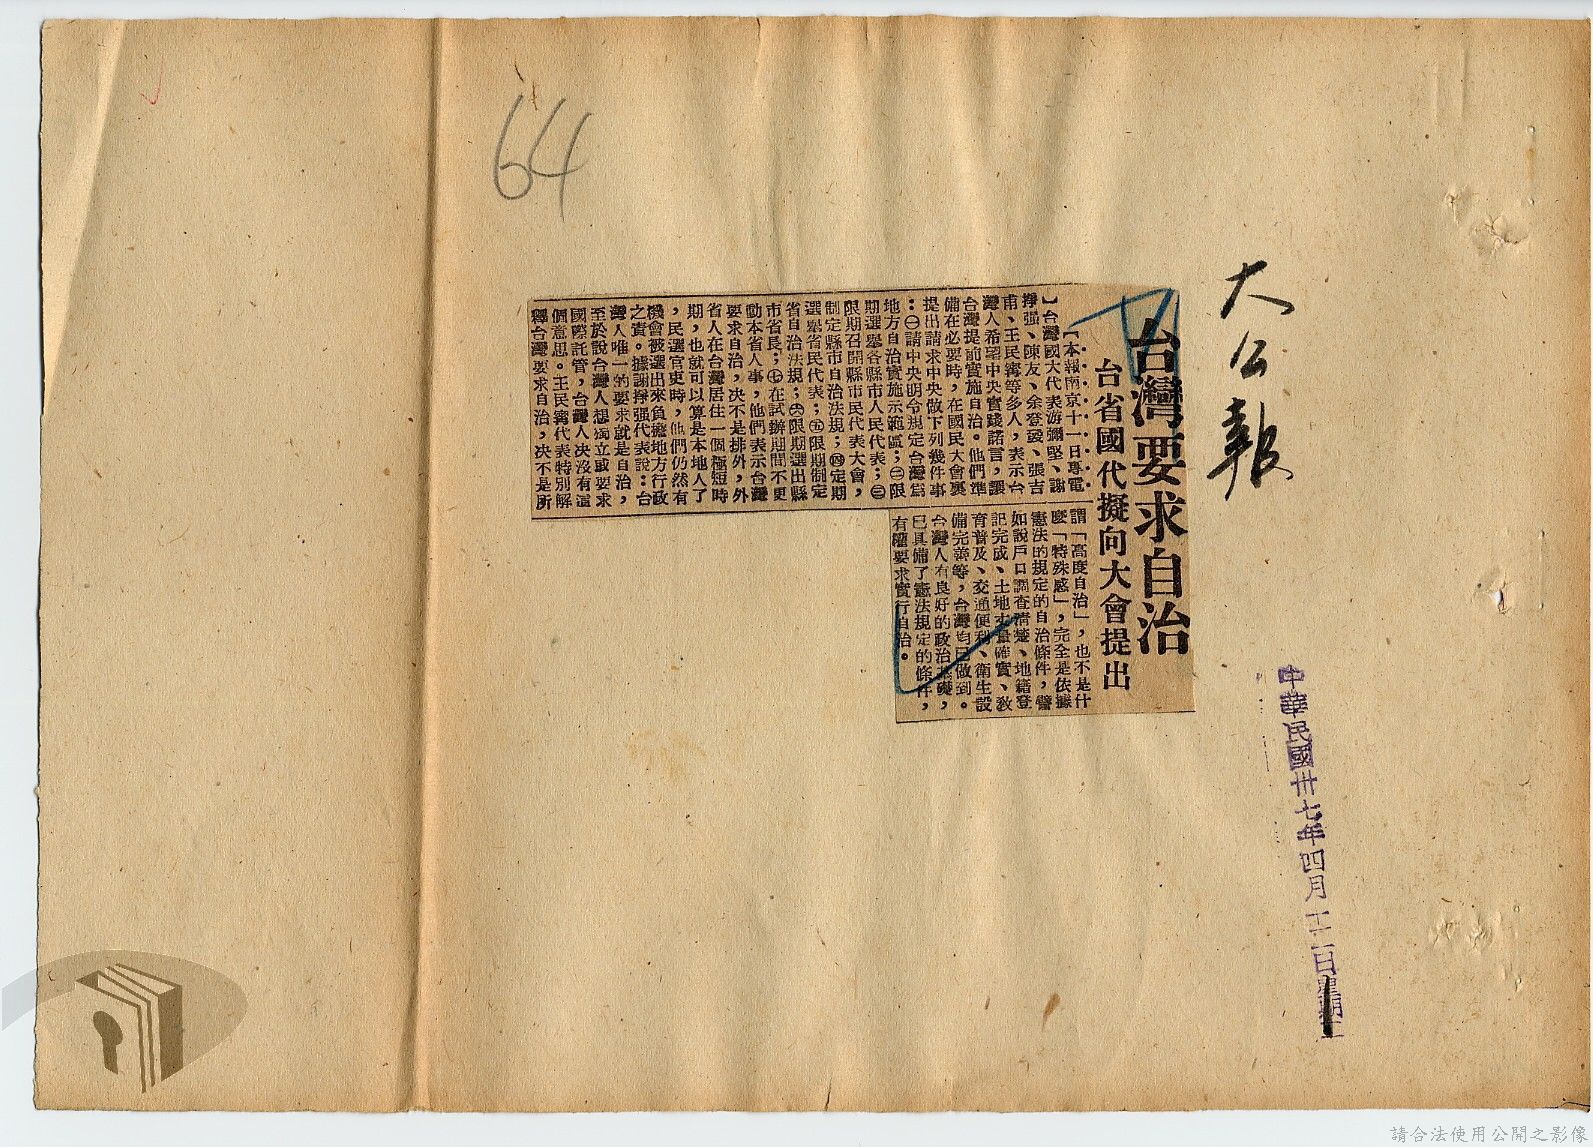 64
大公報
台灣要求自治
台省國代擬向大會提出
【本報南京十一日專電
】台灣國大代表游彌堅、謝
掙强、陳友、余登發、張吉
甫、王民寗等多人，表示台
灣人希望中央實踐諾言，讓
台灣提前實施自治。他們準
備在必要時，在國民大會裏
提出請求中央做下列幾件事
：㊀請中央明令規定台灣爲
地方自治實施示範區；㊁限
期選舉各縣市人民代表；㊂
限期召開縣市民代表大會，
制定縣市自治法規；㊃定期
選舉省民代表；㊄限期制定
省自治法規；㊅限期選出縣
市省長；㊆在試辦期間不更
動本省人事，他們表示台灣
要求自治，决不是排外，外
省人在台灣居住一個極短時
期，也就可以算是本地人了
，民選官吏時，他們仍然有
機會被選出來負擔地方行政
之責。據謝掙强代表說：台
灣人唯一的要求就是自治，
至於說台灣人想獨立或要求
國際託管，台灣人决沒有這
個意思。王民寗代表特別解
釋台灣要求自治，决不是所
謂「高度自治」，也不是什
麼「特殊感」，完全是依據
憲法的規定的自治條件，譬
如說戶口調查清楚、地籍登
記完成、土地丈量確實、敎
育普及、交通便利、衛生設
備完善等，台灣均已做到。
台灣人有良好的政治基礎，
已具備了憲法規定的條件，
有權要求實行自治。
中華民國卅七年四月十二日星期
請合法使用公開之影像